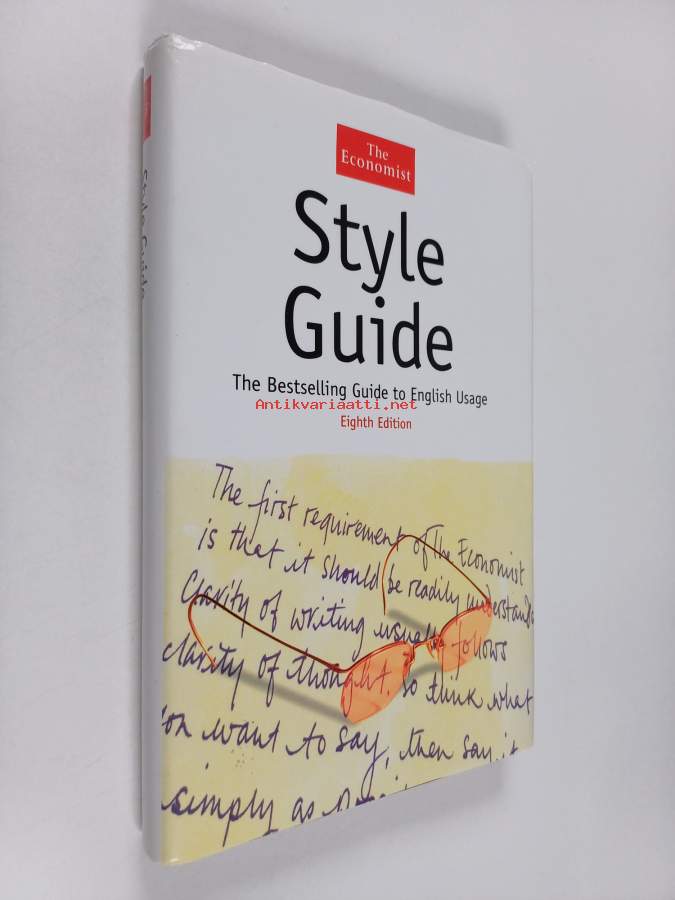 The
Economist
Style
Guide
The Bestselling Guide to English Usage
Antikvariaatti.net
Eighth Edition
The first requirement of The Economist
is that it should be readily understand
Clarity of writing usually follows
clarity of thought. So think what
you want to say, then say it
simply as
Style Guide